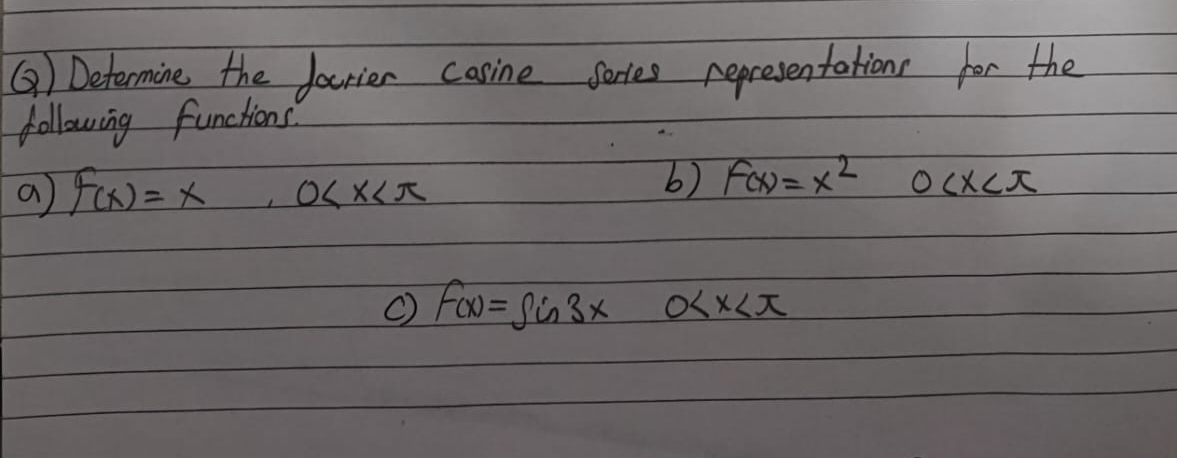 Q) Determine the fourier cosine series representations for the
following functions.
a) f(x) = x , 0<x<π b) f(x) = x² 0<x<π
c) f(x) = sin3x 0<x<π